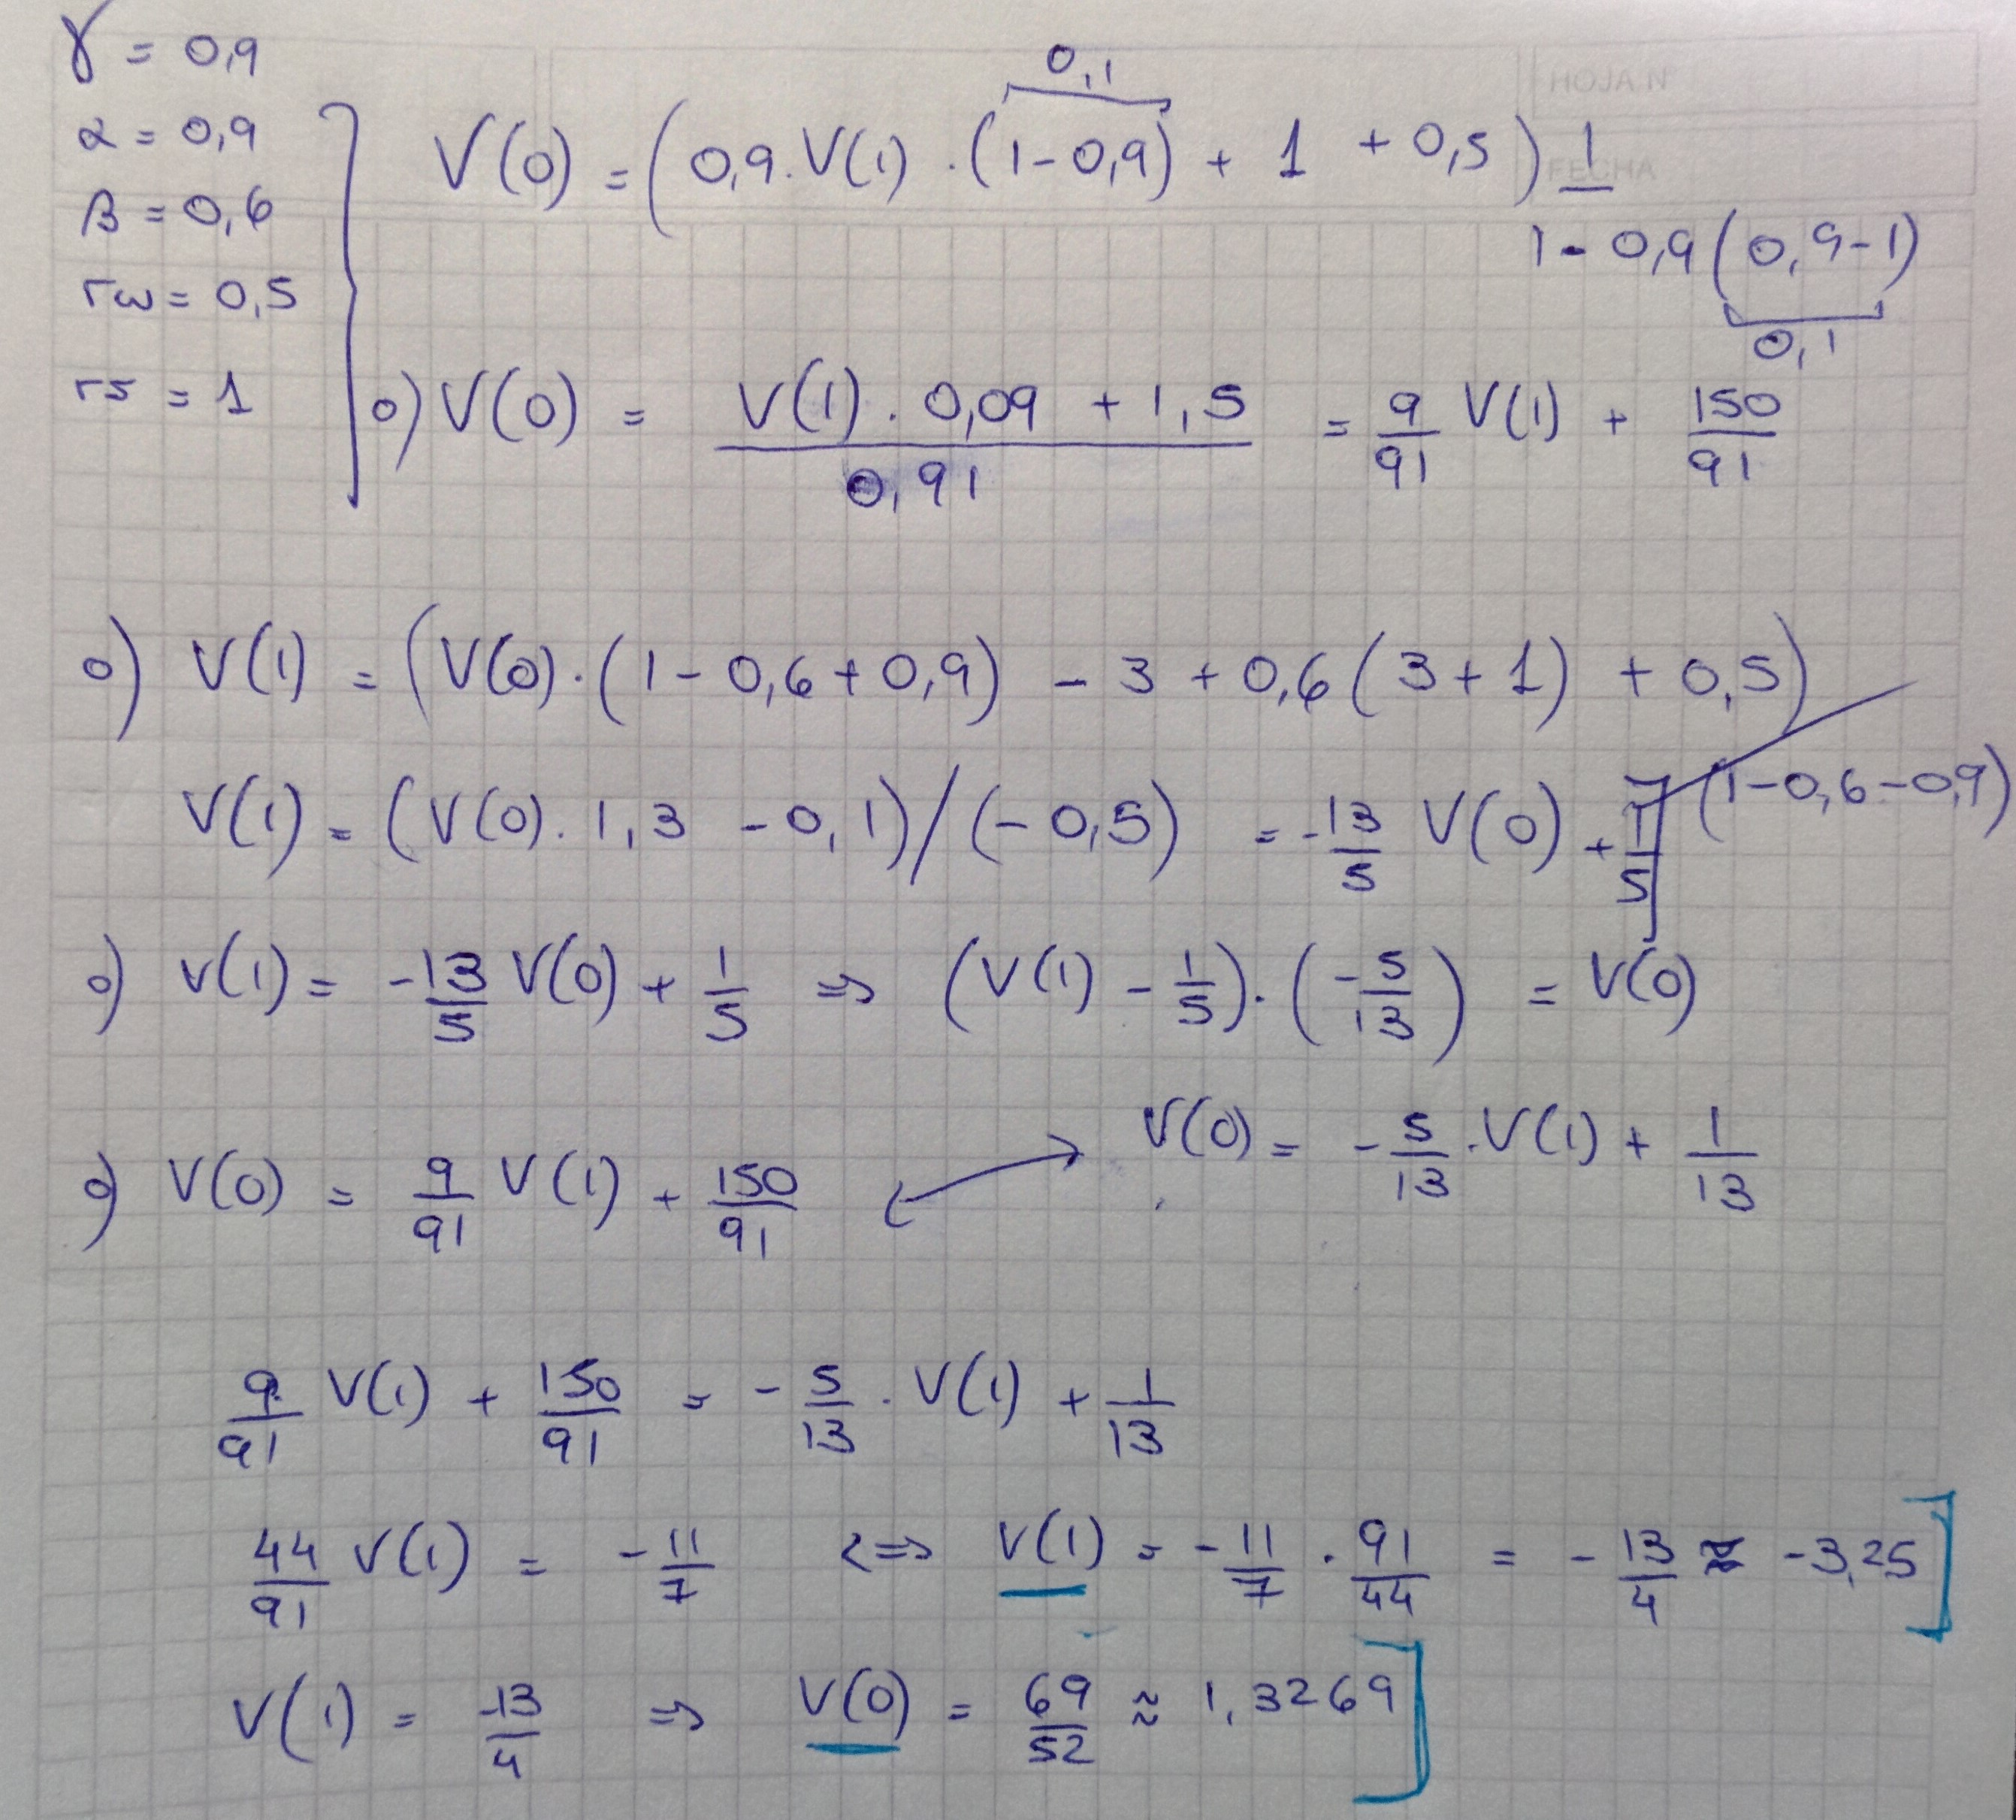 γ = 0,9
α = 0,9
β = 0,6
rw = 0,5
rs = 1
HOJA N
FECHA
0,1
V(0) = (0,9 . V(1) . (1-0,9) + 1 + 0,5) 1
1 - 0,9 (0,9-1)
0,1
o) V(0) = V(1) . 0,09 + 1,5 / 0,91 = 9/91 V(1) + 150/91
o) V(1) = (V(0) . (1 - 0,6 + 0,9) - 3 + 0,6 (3+1) + 0,5)
/ (1-0,6-0,9)
V(1) = (V(0) . 1,3 - 0,1) / (-0,5) = -13/5 V(0) + 1/5
o) V(1) = -13/5 V(0) + 1/5 => (V(1) - 1/5) . (-5/13) = V(0)
V(0) = -5/13 . V(1) + 1/13
o) V(0) = 9/91 V(1) + 150/91
9/91 V(1) + 150/91 = -5/13 . V(1) + 1/13
44/91 V(1) = -11/7 <=> V(1) = -11/7 . 91/44 = -13/4 ≈ -3,25
V(1) = -13/4 => V(0) = 69/52 ≈ 1,3269